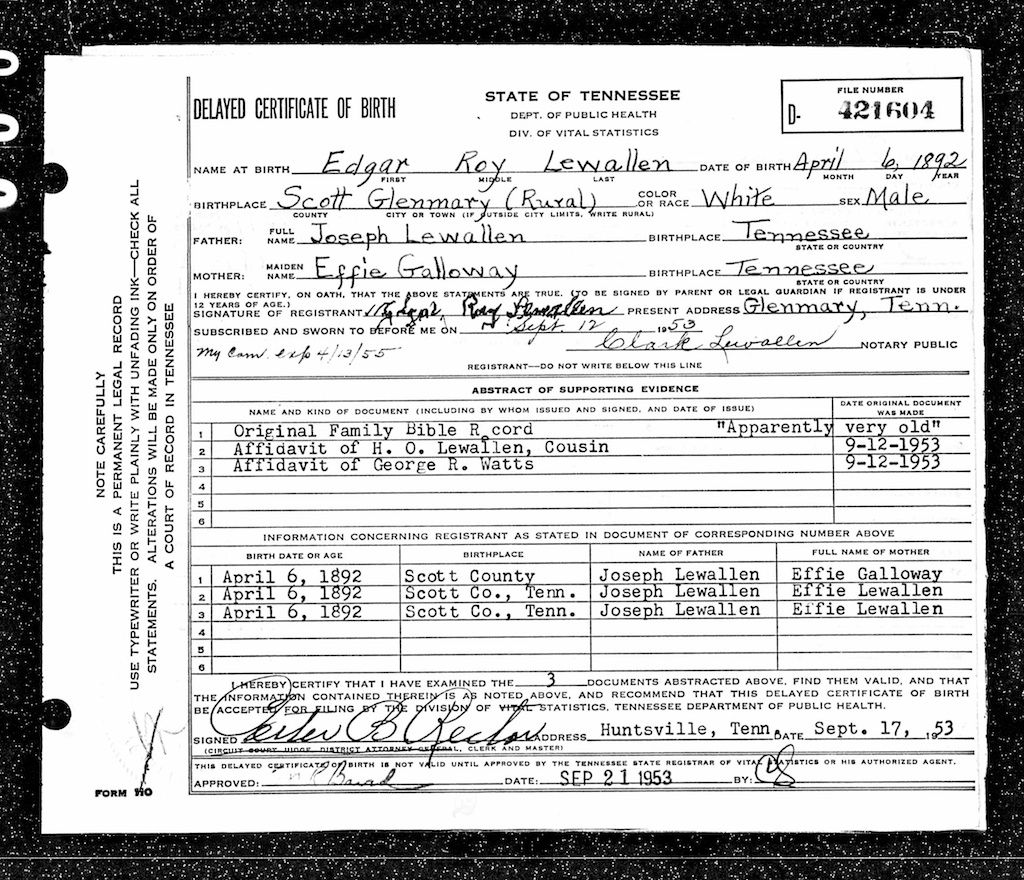 DELAYED CERTIFICATE OF BIRTH
STATE OF TENNESSEE
DEPT. OF PUBLIC HEALTH
DIV. OF VITAL STATISTICS
FILE NUMBER
D- 421604
NAME AT BIRTH Edgar Roy Lewallen DATE OF BIRTH April 6, 1892
FIRST MIDDLE LAST MONTH DAY YEAR
BIRTHPLACE Scott Glenmary (Rural) COLOR OR RACE White SEX Male
COUNTY CITY OR TOWN (IF OUTSIDE CITY LIMITS, WRITE RURAL)
FATHER: FULL NAME Joseph Lewallen BIRTHPLACE Tennessee
STATE OR COUNTRY
MOTHER: MAIDEN NAME Effie Galloway BIRTHPLACE Tennessee
STATE OR COUNTRY
I HEREBY CERTIFY, ON OATH, THAT THE ABOVE STATEMENTS ARE TRUE. (TO BE SIGNED BY PARENT OR LEGAL GUARDIAN IF REGISTRANT IS UNDER
12 YEARS OF AGE.)
SIGNATURE OF REGISTRANT Edgar Roy Lewallen PRESENT ADDRESS Glenmary, Tenn.
SUBSCRIBED AND SWORN TO BEFORE ME ON Sept. 12 1953
My Com. exp 4/13/55 Clark Lewallen NOTARY PUBLIC
REGISTRANT—DO NOT WRITE BELOW THIS LINE
ABSTRACT OF SUPPORTING EVIDENCE
NAME AND KIND OF DOCUMENT (INCLUDING BY WHOM ISSUED AND SIGNED, AND DATE OF ISSUE) DATE ORIGINAL DOCUMENT WAS MADE
1 Original Family Bible R cord "Apparently very old"
2 Affidavit of H. O. Lewallen, Cousin 9-12-1953
3 Affidavit of George R. Watts 9-12-1953
4
5
6
INFORMATION CONCERNING REGISTRANT AS STATED IN DOCUMENT OF CORRESPONDING NUMBER ABOVE
BIRTH DATE OR AGE BIRTHPLACE NAME OF FATHER FULL NAME OF MOTHER
1 April 6, 1892 Scott County Joseph Lewallen Effie Galloway
2 April 6, 1892 Scott Co., Tenn. Joseph Lewallen Effie Lewallen
3 April 6, 1892 Scott Co., Tenn. Joseph Lewallen Effie Lewallen
4
5
6
I HEREBY CERTIFY THAT I HAVE EXAMINED THE 3 DOCUMENTS ABSTRACTED ABOVE, FIND THEM VALID, AND THAT
THE INFORMATION CONTAINED THEREIN IS AS NOTED ABOVE, AND RECOMMEND THAT THIS DELAYED CERTIFICATE OF BIRTH
BE ACCEPTED FOR FILING BY THE DIVISION OF VITAL STATISTICS, TENNESSEE DEPARTMENT OF PUBLIC HEALTH.
SIGNED B ADDRESS Huntsville, Tenn. DATE Sept. 17, 1953
(CIRCUIT COURT JUDGE, DISTRICT ATTORNEY GENERAL, CLERK AND MASTER)
THIS DELAYED CERTIFICATE OF BIRTH IS NOT VALID UNTIL APPROVED BY THE TENNESSEE STATE REGISTRAR OF VITAL STATISTICS OR HIS AUTHORIZED AGENT.
APPROVED: DATE: SEP 21 1953 BY:
FORM 110
NOTE CAREFULLY
THIS IS A PERMANENT LEGAL RECORD
USE TYPEWRITER OR WRITE PLAINLY WITH UNFADING INK—CHECK ALL
STATEMENTS. ALTERATIONS WILL BE MADE ONLY ON ORDER OF
A COURT OF RECORD IN TENNESSEE